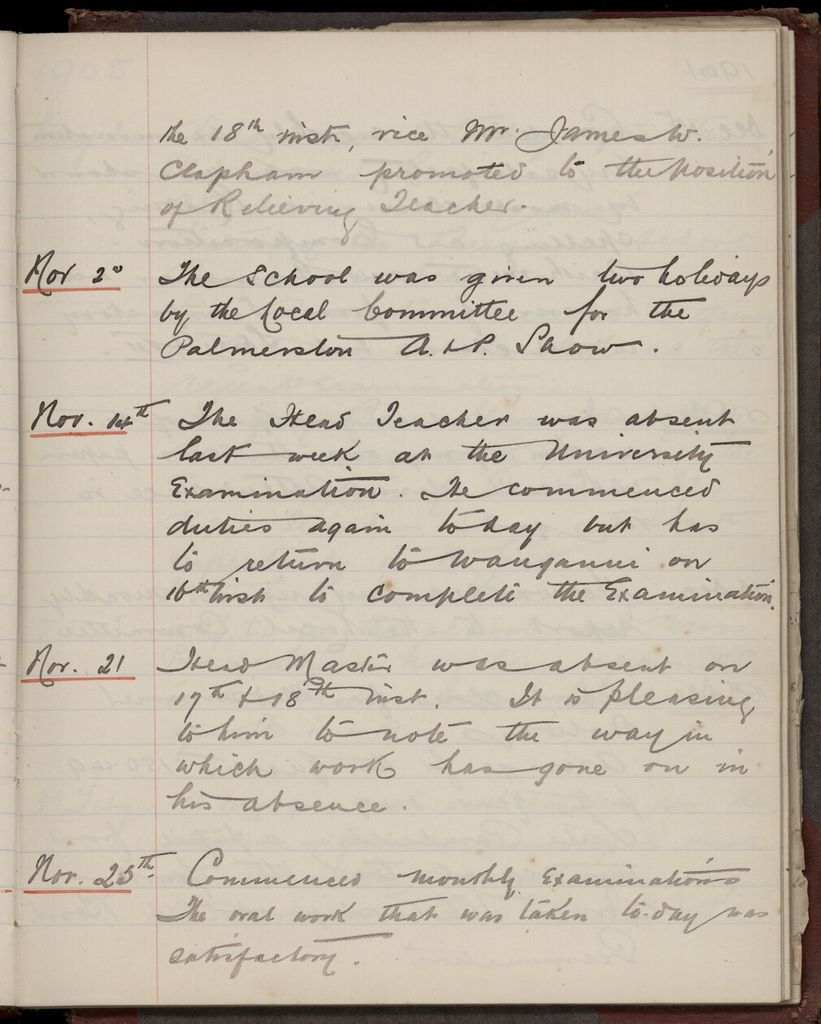 the 18th inst, vice Mr. James W.
Clapham promoted to the position
of Relieving Teacher.
Nov 2º The School was given two holidays
by the Local Committee for the
Palmerston A. & P. Show.
Nov. 14th The Head Teacher was absent
last week at the University
Examination. He commenced
duties again today but has
to return to Wanganui on
16th inst to complete the Examination.
Nov. 21 Head Master was absent on
17th & 18th inst. It is pleasing
to him to note the way in
which work has gone on in
his absence.
Nov. 25th. Commenced monthly Examinations
The oral work that was taken to-day was
satisfactory.